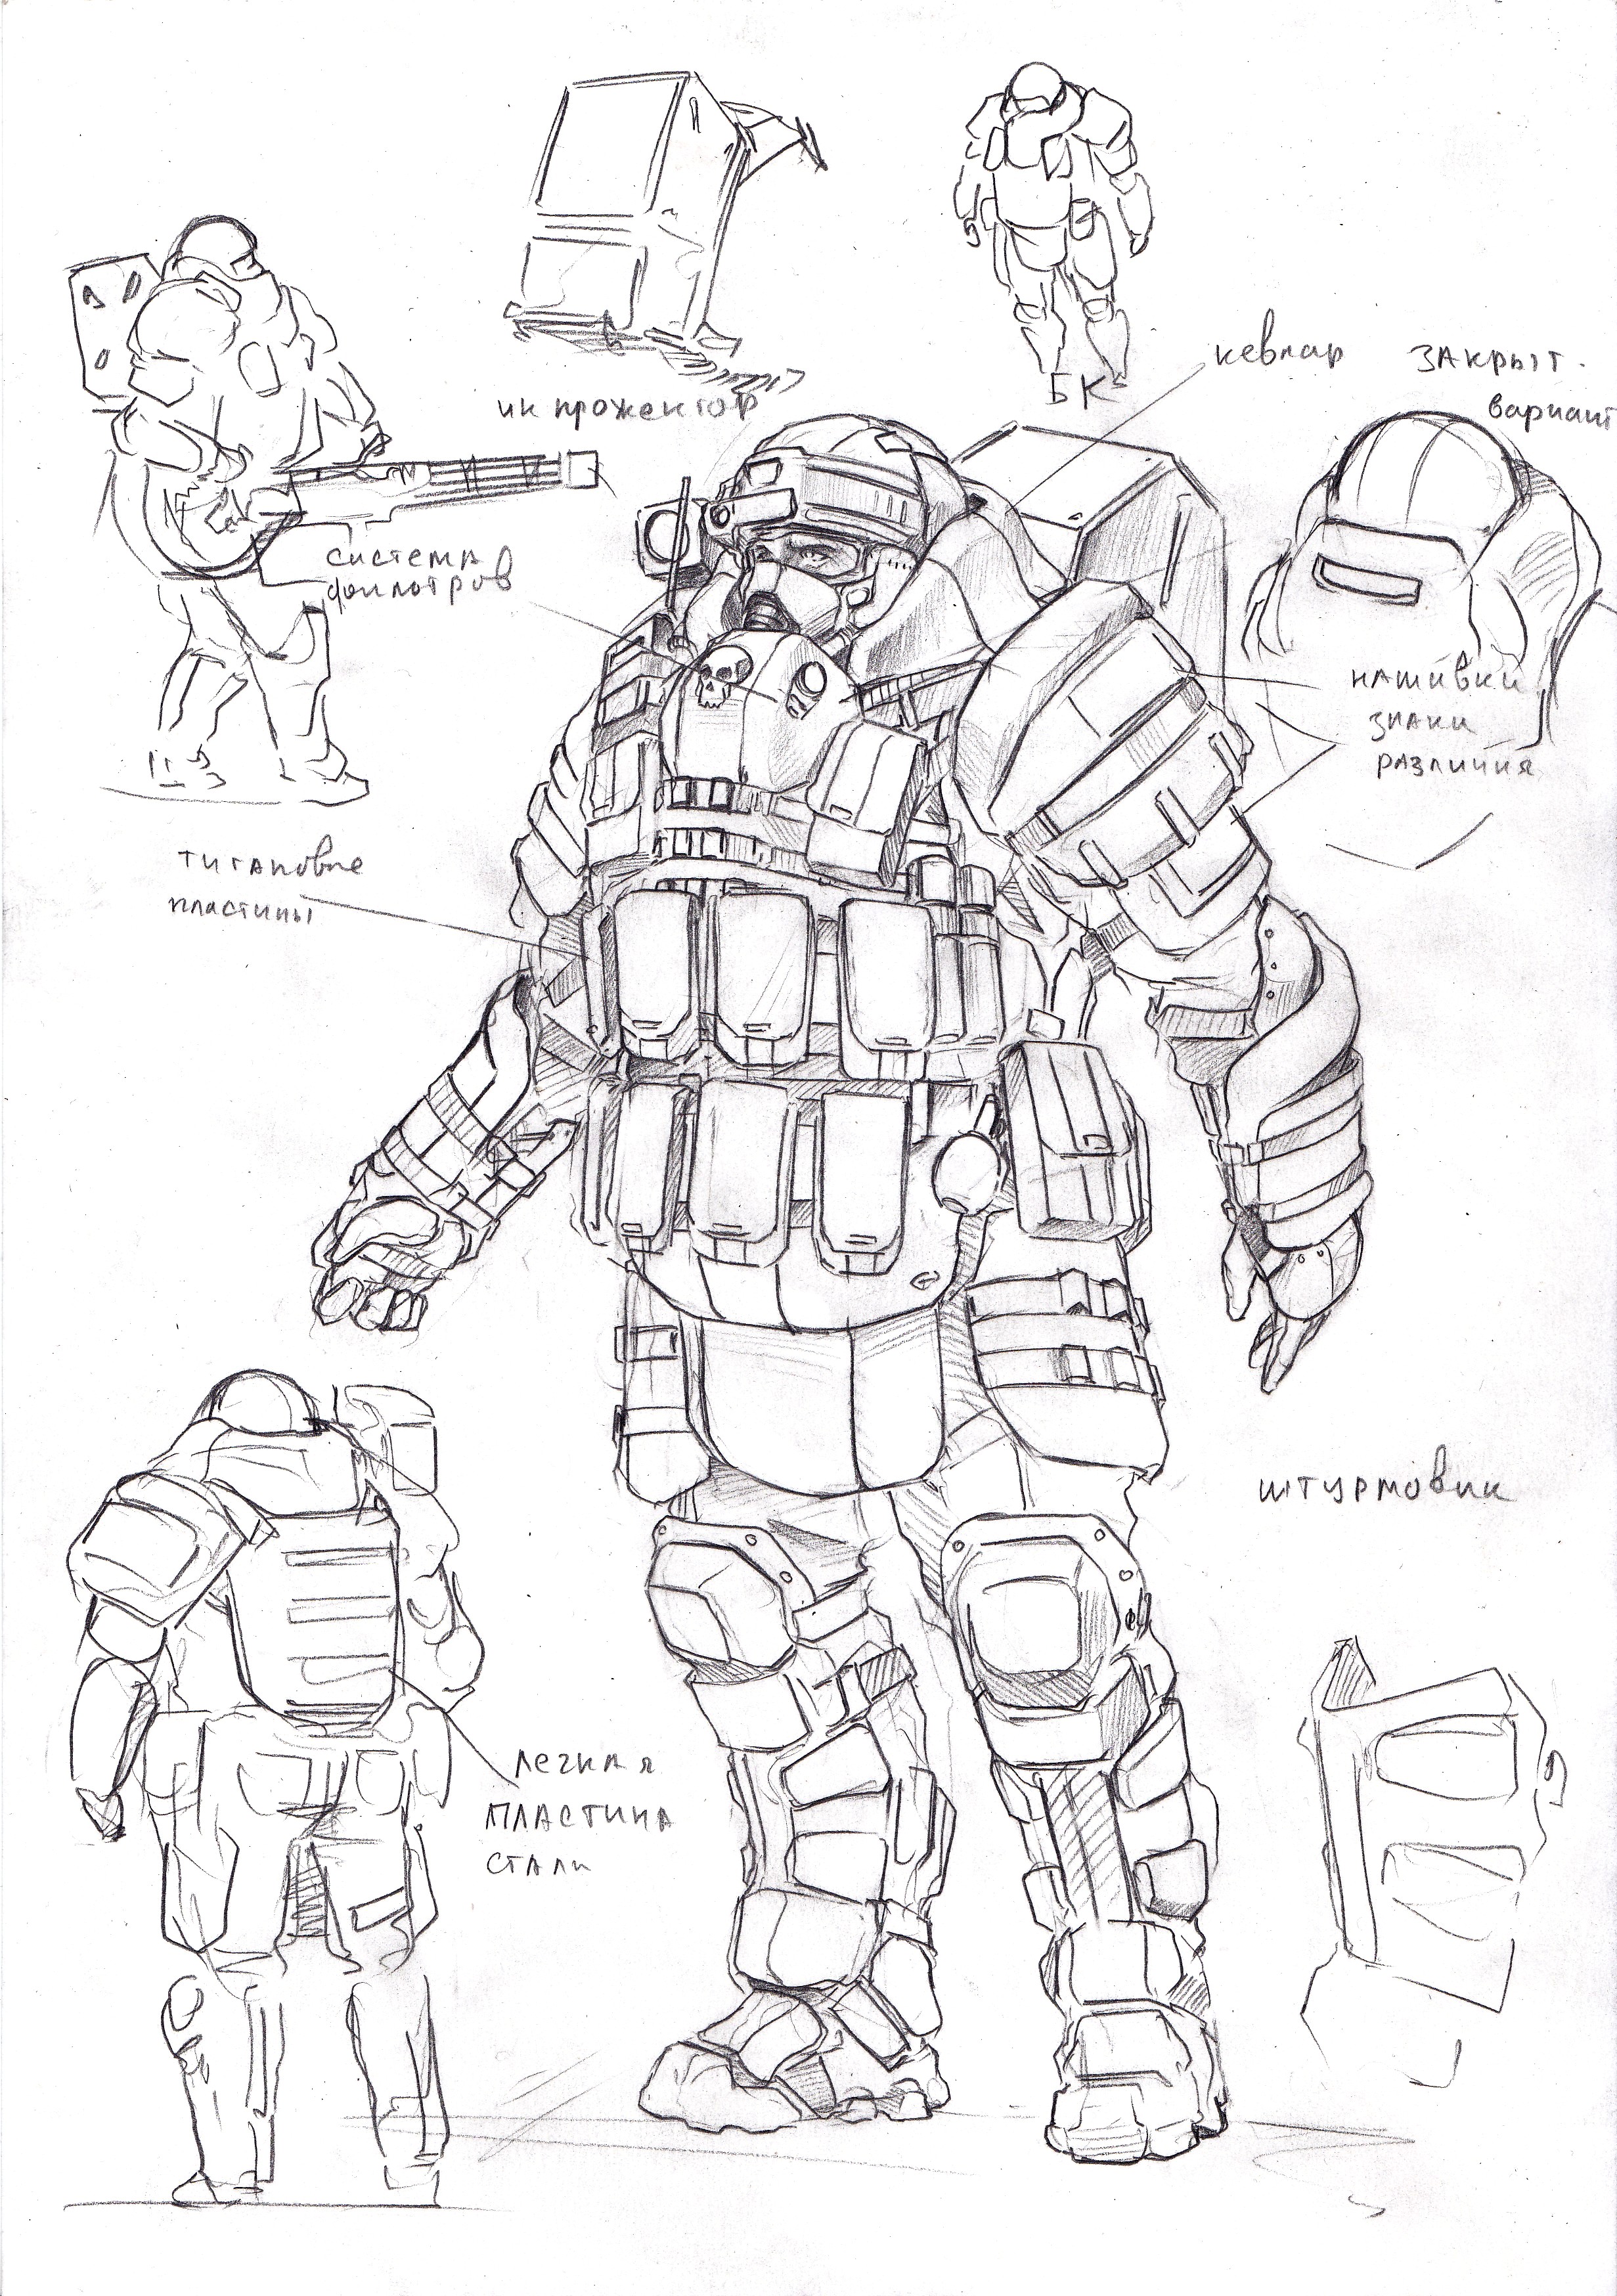 ик прожектор
БК
кевлар
закрыт.
вариант
система
фильтров
нашивки
знаки
различия
титановые
пластины
штурмовик
легкая
пластина
стали